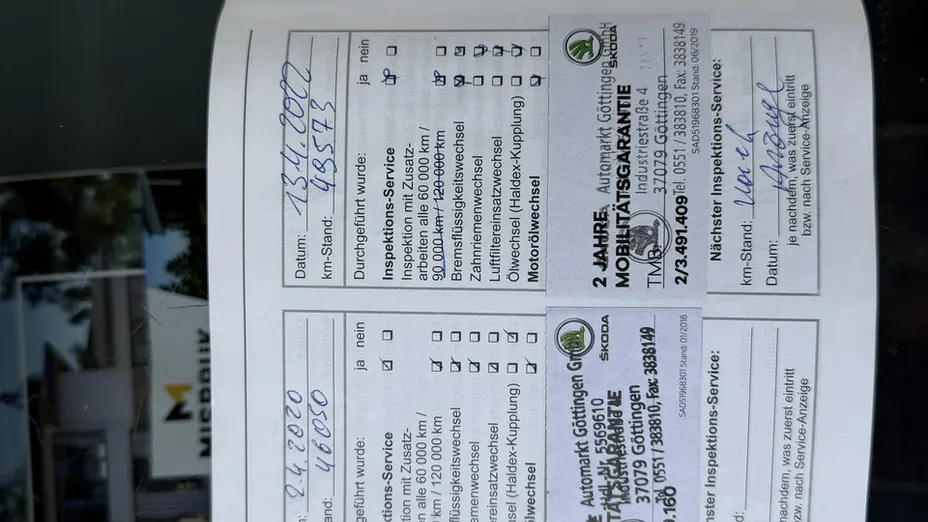 Datum: 13.4.2022
km-Stand: 49573
Durchgeführt wurde: ja nein
Inspektions-Service
Inspektion mit Zusatz-
arbeiten alle 60 000 km /
90 000 km / 120 000 km
Bremsflüssigkeitswechsel
Zahnriemenwechsel
Luftfiltereinsatzwechsel
Ölwechsel (Haldex-Kupplung)
Motorölwechsel
ŠKODA
2 JAHRE Automarkt Göttingen GmbH
MOBILITÄTSGARANTIE
Industriestraße 4
TMB 37079 Göttingen
2/3.491.409 Tel. 0551 / 383810, Fax: 3838149
SAD51968301 Stand: 06/2019
Nächster Inspektions-Service:
km-Stand: nach
Datum: Anzeige
je nachdem, was zuerst eintritt
bzw. nach Service-Anzeige
2.4.2020
stand: 46050
geführt wurde: ja nein
ktions-Service
tion mit Zusatz-
en alle 60 000 km /
0 km / 120 000 km
flüssigkeitswechsel
emenwechsel
ereinsatzwechsel
sel (Haldex-Kupplung)
ölwechsel
ŠKODA
Automarkt Göttingen GmbH
5569610
37079 Göttingen
Tel. 0551 / 383810, Fax: 3838149
9.160
SAD51968301 Stand: 01/2018
ster Inspektions-Service:
and:
nachdem, was zuerst eintritt
bzw. nach Service-Anzeige